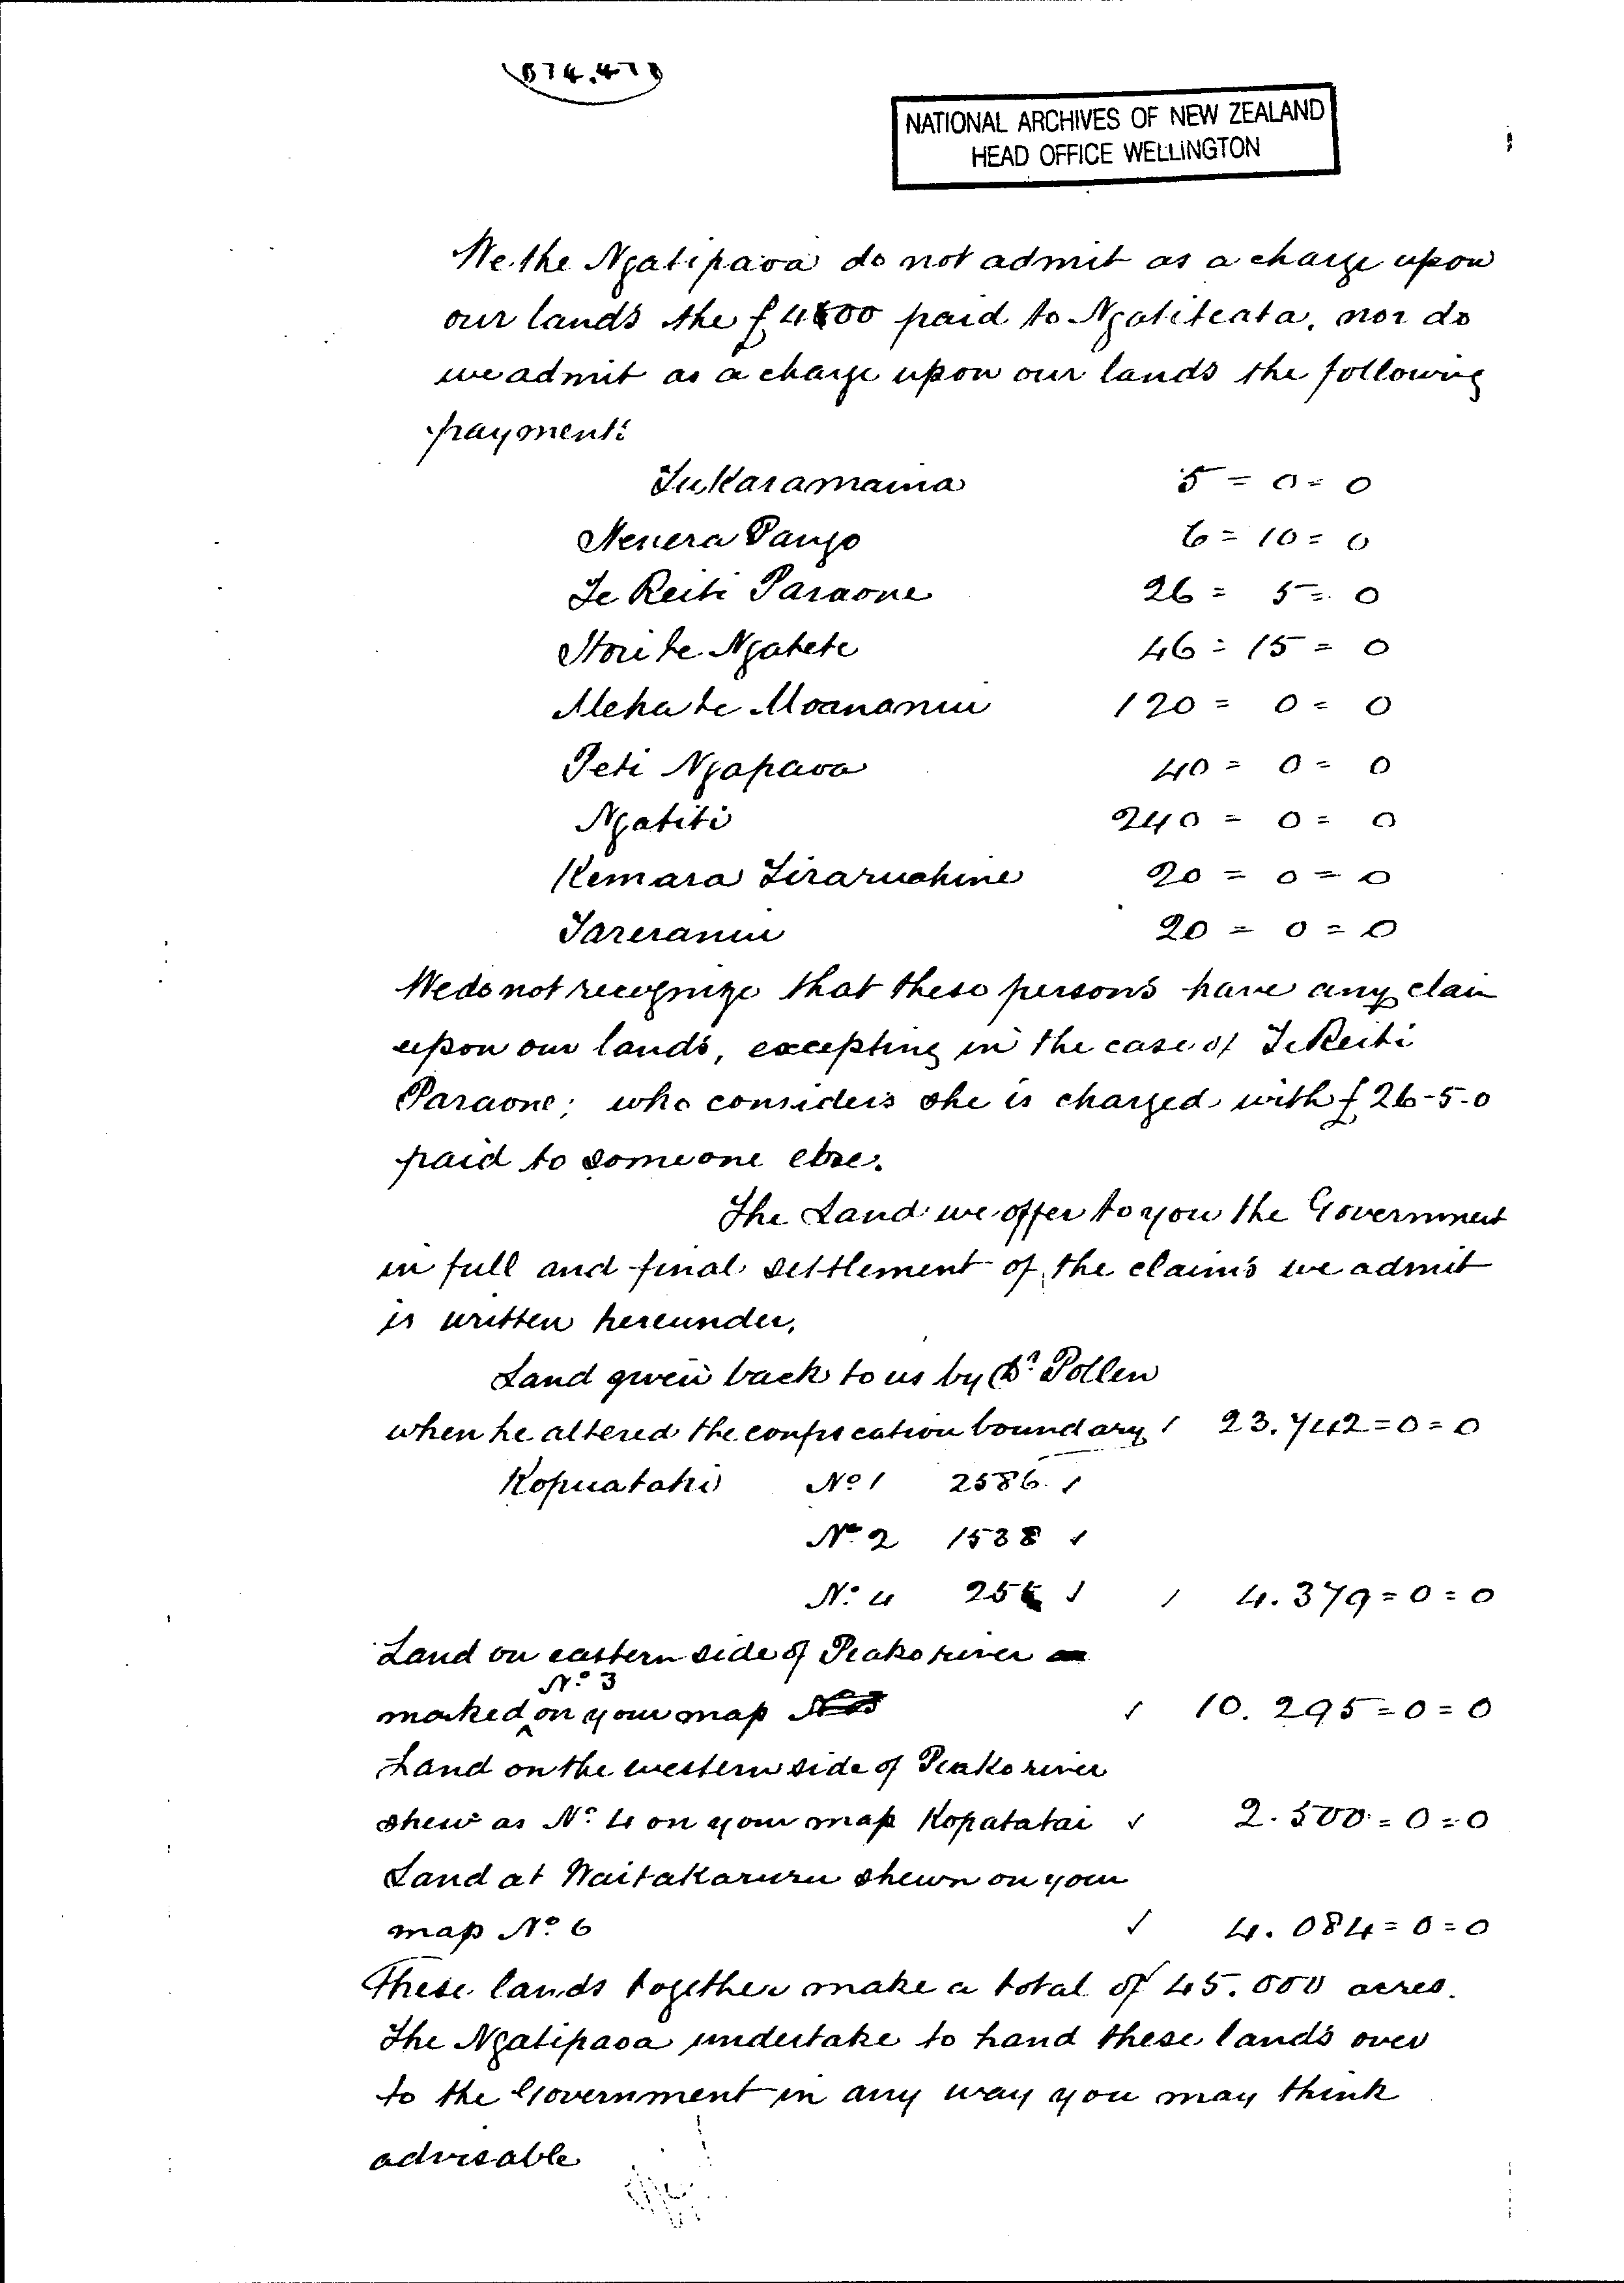 NATIONAL ARCHIVES OF NEW ZEALAND
HEAD OFFICE WELLINGTON
We the Ngatipaoa do not admit as a charge upon
our lands the £ paid to Ngatiteata, nor do
we admit as a charge upon our lands the following
payments
Tukaramaina 5 = 0 = 0
Nenera Pango 6 = 10 = 0
Te Reiti Paraone 26 = 5 = 0
Hori te Ngatete 46 = 15 = 0
Meha te Moananui 120 = 0 = 0
Peti Ngapaoa 40 = 0 = 0
Ngatiti 240 = 0 = 0
Kemara Tiraruahine 20 = 0 = 0
Tareranui 20 = 0 = 0
We do not recognize that these persons have any claim
upon our lands, excepting in the case of Te Reiti
Paraone; who considers she is charged with £26-5-0
paid to someone else.
The Land we offer to you the Government
in full and final settlement of the claims we admit
is written hereunder.
Land given back to us by Dr Pollen
when he altered the confiscation boundary 23.742 = 0 = 0
Kopuatahi No 1 2586
No 2 1538
No 4 255 4.379 = 0 = 0
Land on eastern side of Piako river
No 3
marked on your map 10.295 = 0 = 0
Land on the western side of Piako river
shew as No 4 on your map Kopatatai 2.500 = 0 = 0
Land at Waitakaruru shewn on your
map No 6 4.084 = 0 = 0
These lands together make a total of 45.000 acres.
The Ngatipaoa undertake to hand these lands over
to the Government in any way you may think
advisable